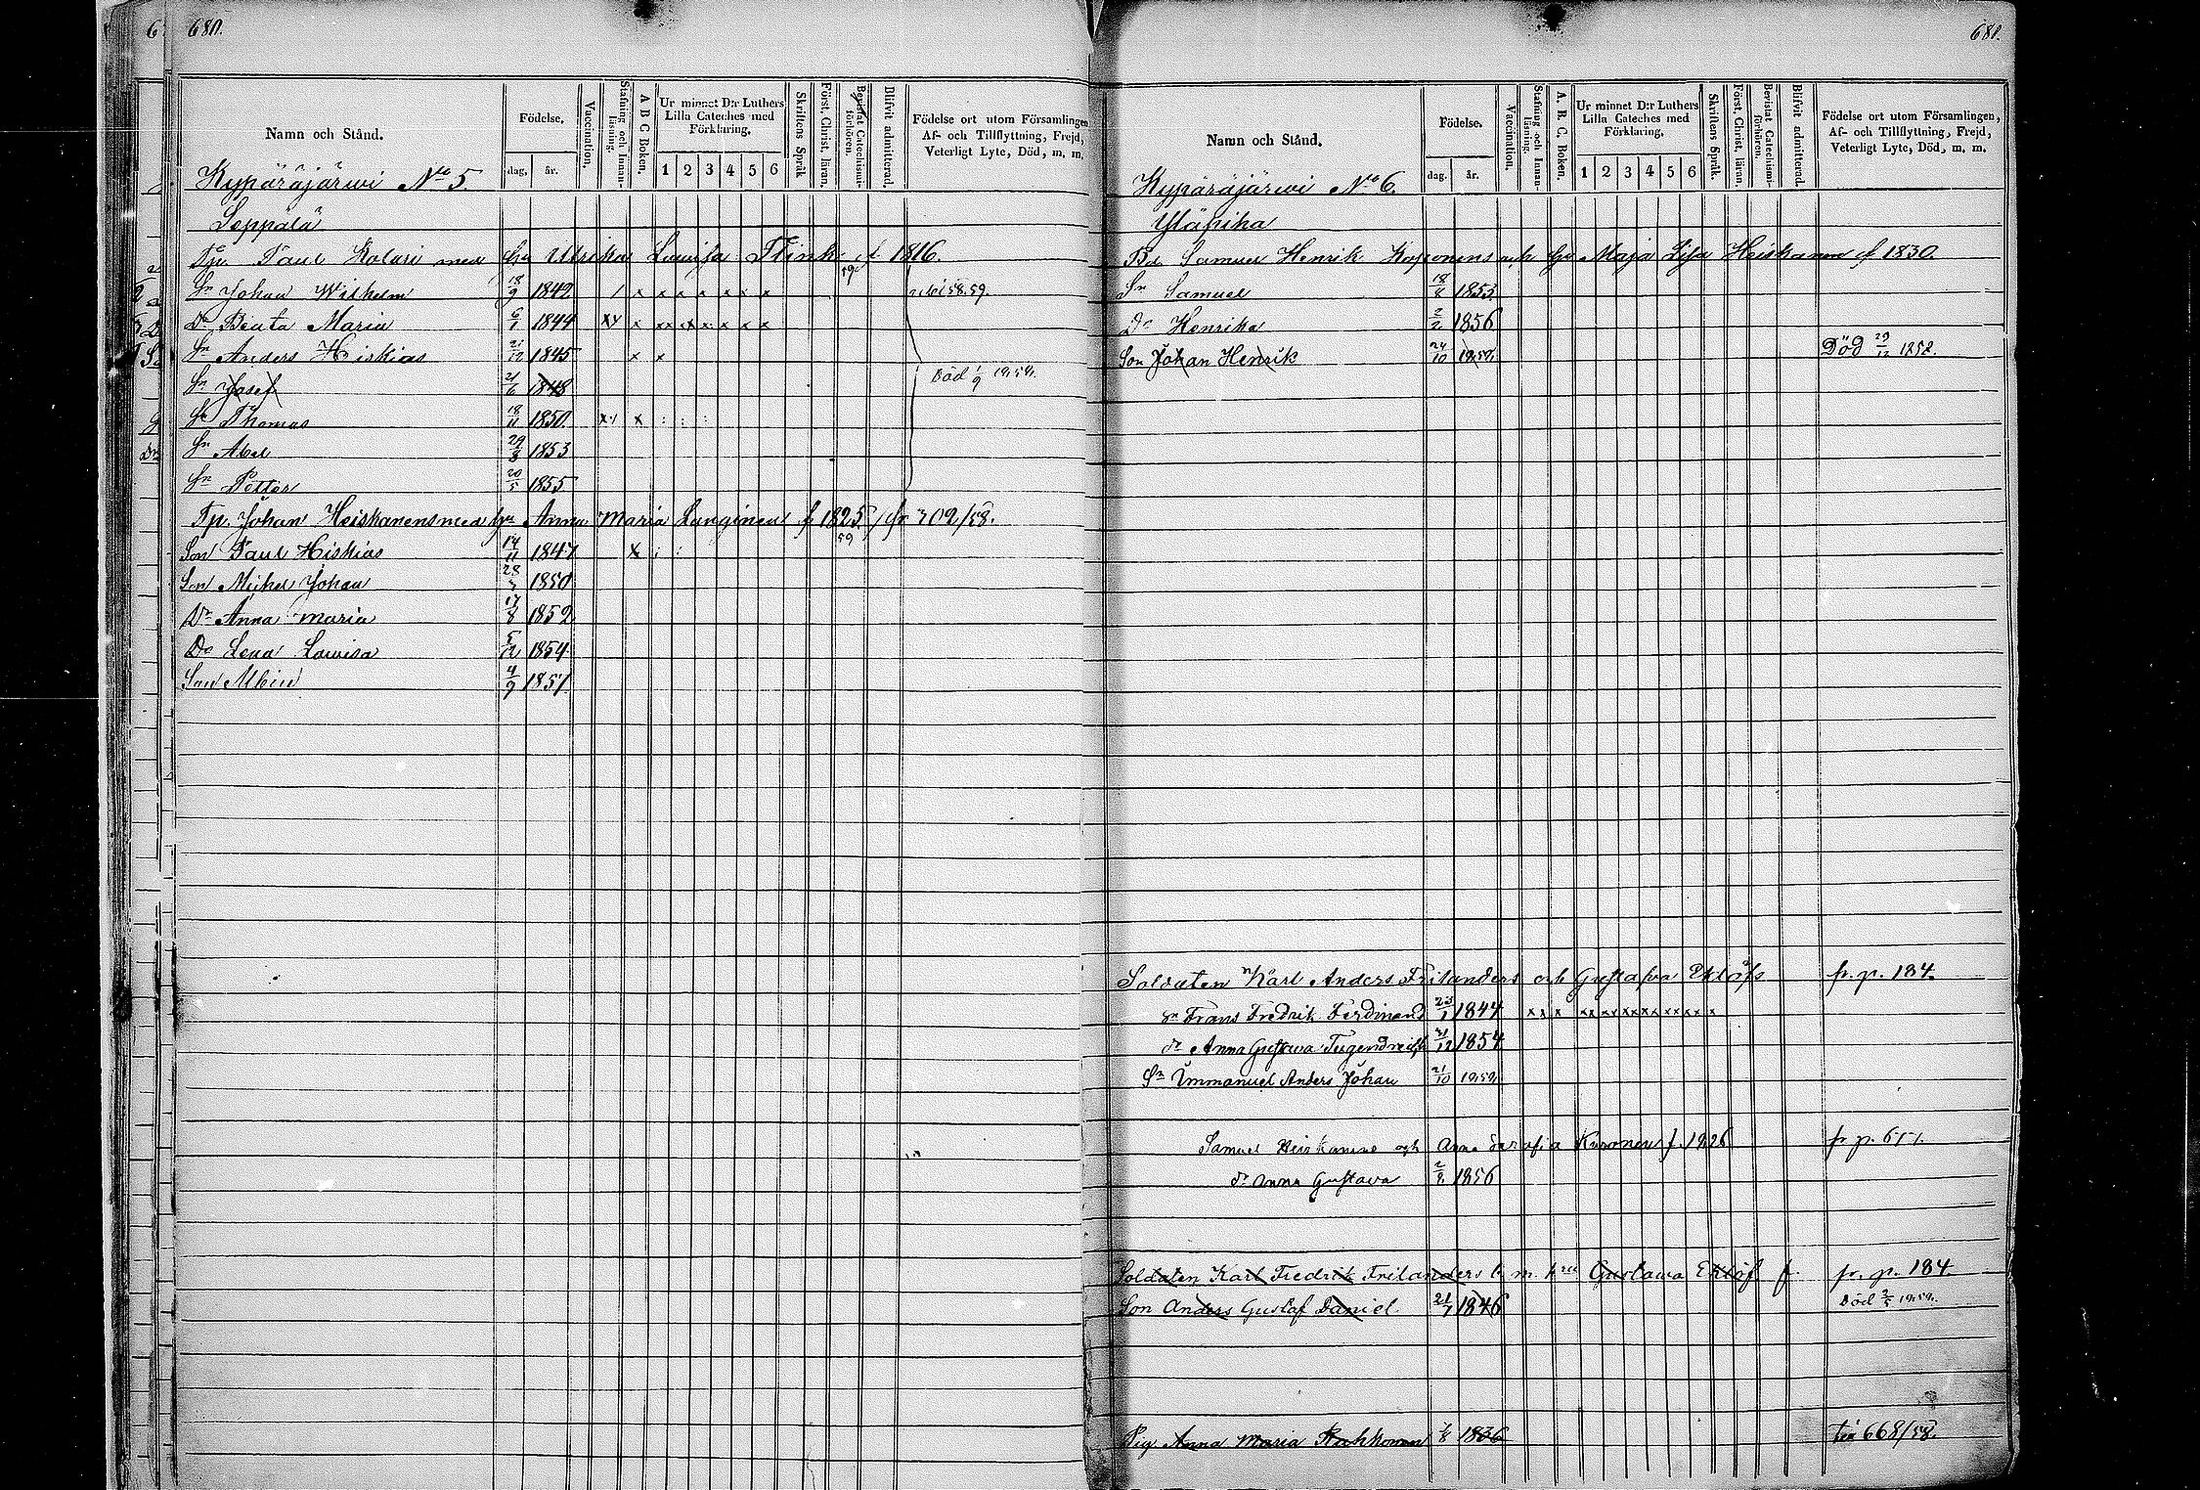 680.
Namn och Stånd.
Födelse.
dag.
år.
Vaccination.
Stafning och Innan-
läsning.
A B C Boken.
Ur minnet D:r Luthers
Lilla Cateches med
Förklaring.
1 2 3 4 5 6
Skriftens Språk
Först. Christ. läran.
Bevistat Catechismi-
förhören.
Blifvit admitterad.
Födelse ort utom Församlingen
Af- och Tillflyttning, Frejd,
Veterligt Lyte, Död, m. m.
Kypäräjärwi No 5
Seppälä
Paul Kolari med hu Ulrika Lowisa Flink f 1816.
Sn Johan Wilhelm 18/9 1842
58.59.
Dr Beata Maria 6/1 1844
Sn Anders Hiskias 21/12 1845
Sn Josef 21/6 1848 Död 1/9 1858.
Sn Thomas 18/11 1850
Sn Abel 29/8 1853
Sn Petter 20/5 1855
Johan Heiskanens med hu Anna Maria Langinen f 1825 fr 709/58.
59
Son Paul Hiskias 14/11 1847
Son Michel Johan 28 1850
Dr Anna Maria 17/8 1852
Dr Lena Lowisa 5/12 1854
Son Albin 4/9 1857
681.
Namn och Stånd.
Födelse.
dag.
år.
Vaccination.
Stafning och Innan-
läsning.
A. B. C. Boken.
Ur minnet D:r Luthers
Lilla Cateches med
Förklaring.
1 2 3 4 5 6
Skriftens Språk.
Först. Christ. läran.
Bevistat Catechismi-
förhören.
Blifvit admitterad.
Födelse ort utom Församlingen,
Af- och Tillflyttning, Frejd,
Veterligt Lyte, Död, m. m.
Kypäräjärwi No 6.
Yläpiha
Bd Samuel Henrik Koponens och hu Maja Lisa Heiskanen f 1830.
Sn Samuel 18/8 1853
Dr Henrika 2/2 1856
Son Johan Henrik 24/10 1858. Död 29/12 1858.
Soldaten Karl Anders Frilanders och Gustafva Eklöfs fr. p. 184.
Sn Frans Fredrik Ferdinand 23/1 1844
dr Anna Gustava 31/12 1854
Sn Immanuel Anders Johan 21/10 1858
Samuel Heiskanens och Anna Sarafia Kuronen f. 1826
dr Anna Gustava 1856
Soldaten Karl Fredrik Frilanders Gustawa Eklöf f. fr. p. 184.
Son Anders Gustaf Daniel 21/7 1846 Död
Pig Anna Maria 1836 till 668/58.